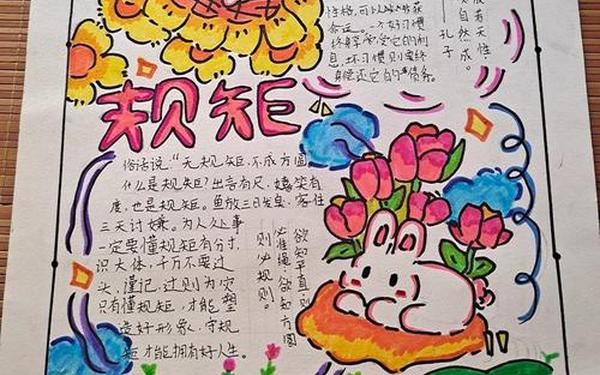 性格,可以收获
命运。一个好习惯
终身享受它的利
息,坏习惯则要终
身偿还它的债务。
若天性,
自然成。
孔子
规矩
俗话说:"无规矩,不成方圆
什么是规矩?出言有尺,嬉笑有
度,也是规矩。鱼放三日发臭,客住
三天讨嫌。为人处事
一定要懂规矩有分寸,
识大体,千万不要过
头,谨记,过则为灾
只有懂规矩,才能塑
造好形象,守规
矩才能拥有好人生。
欲知平直,则
必准绳;欲知方圆
则必规。